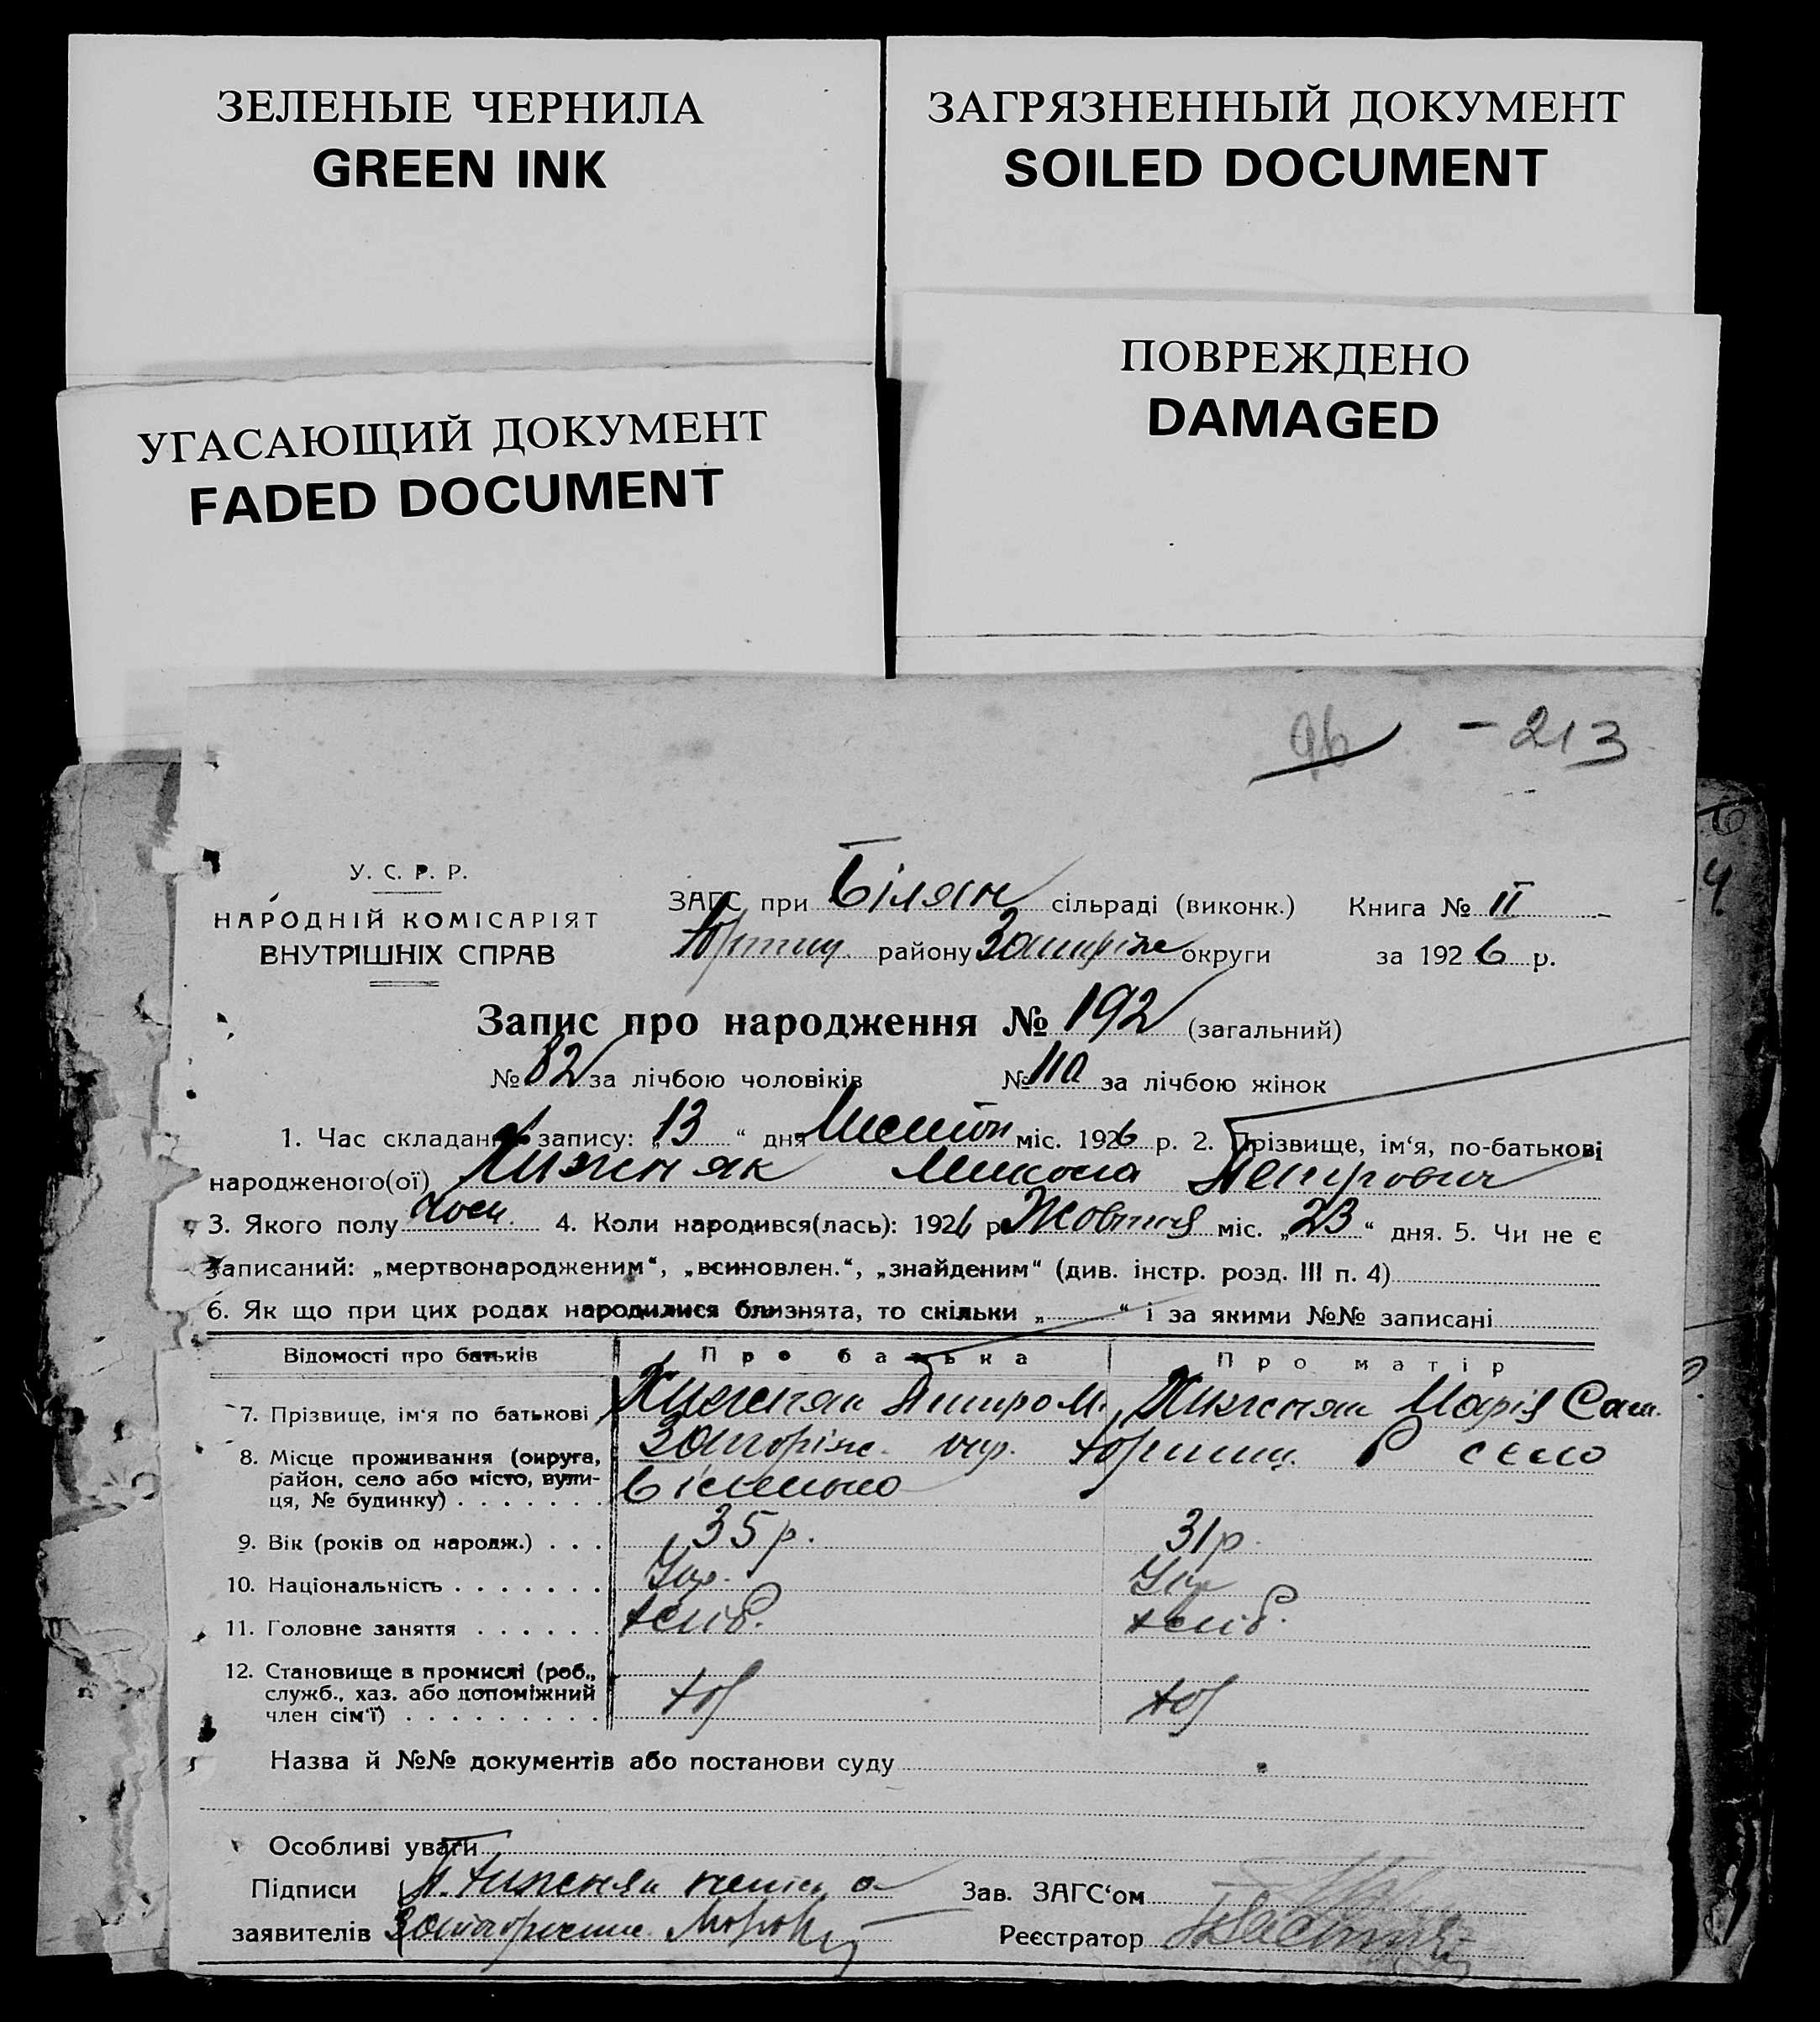 ЗЕЛЕНЫЕ ЧЕРНИЛА
GREEN INK
ЗАГРЯЗНЕННЫЙ ДОКУМЕНТ
SOILED DOCUMENT
УГАСАЮЩИЙ ДОКУМЕНТ
FADED DOCUMENT
ПОВРЕЖДЕНО
DAMAGED
- 213
У. С. Р. Р.
НАРОДНІЙ КОМІСАРІЯТ
ВНУТРІШНІХ СПРАВ
ЗАГС при Білян сільраді (виконк.) Книга № II
району округи за 1926 р.
Запис про народження № 192 (загальний)
№ 82 за лічбою чоловіків № 110 за лічбою жінок
1. Час складання запису: „13“ дня міс. 1926 р. 2. Прізвище, ім‘я, по-батькові
народженого(ої) Хижняк Микола Петрович
3. Якого полу 4. Коли народився(лась): 1926 р. Жовтня міс. „23“ дня. 5. Чи не є
записаний: „мертвонародженим“, „всиновлен.“, „знайденим“ (див. інстр. розд. III п. 4)
6. Як що при цих родах народилися близнята, то скільки „ “ і за якими №№ записані
Відомості про батьків Про батька Про матір
7. Прізвище, ім‘я по батькові Хижняк Хижняк Марія
8. Місце проживання (округа,
район, село або місто, вули-
ця, № будинку) Запоріж. село
9. Вік (років од народж.) 35 р. 31 р.
10. Національність Укр. Укр
11. Головне заняття хліб. хліб.
12. Становище в промислі (роб.,
служб., хаз. або допоміжний
член сім‘ї) хоз хоз
Назва й №№ документів або постанови суду
Особливі уваги
Підписи Хижняк Зав. ЗАГС‘ом
заявителів Реєстратор